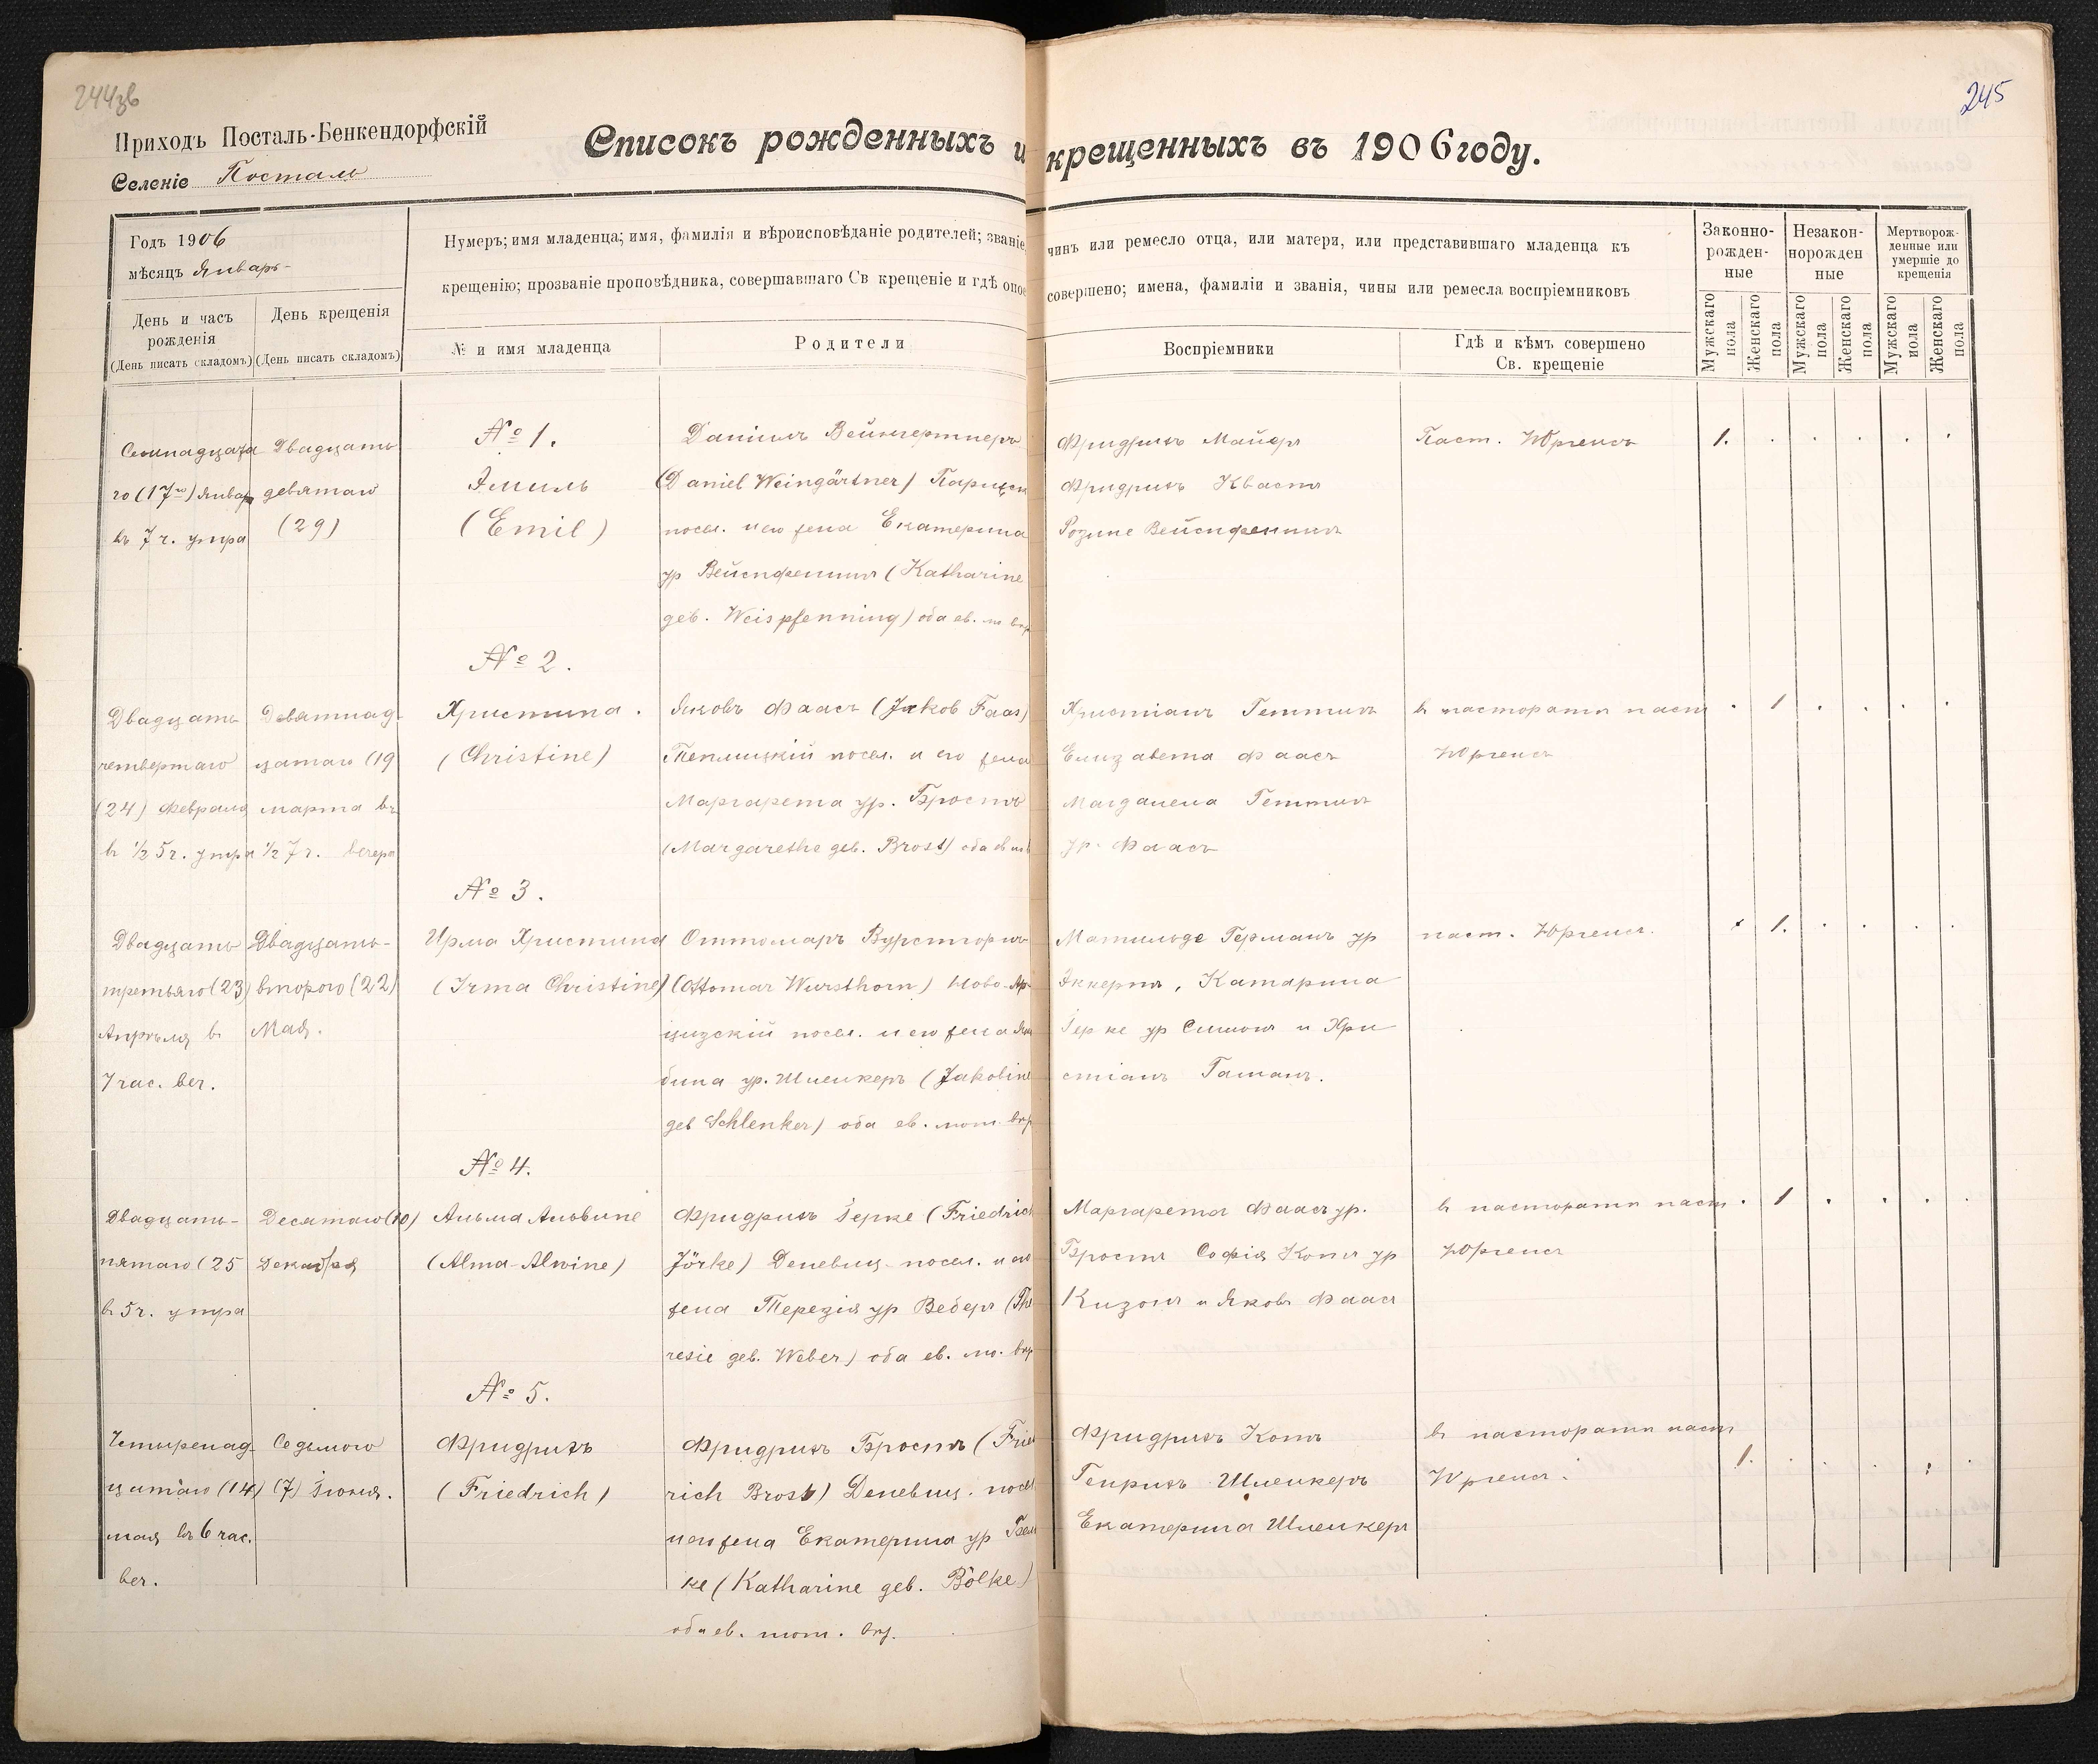 244зв
245
Приходъ Посталь-Бенкендорфскій
Селеніе Посталь
Списокъ рожденныхъ и крещенныхъ въ 1906 году.
Годъ 1906
мѣсяцъ Январь
День и часъ рожденія
(День писать складомъ)
День крещенія
(День писать складомъ)
Нумеръ; имя младенца; имя, фамилія и вѣроисповѣданіе родителей; званіе, чинъ или ремесло отца, или матери, или представившаго младенца къ
крещенію; прозваніе проповѣдника, совершавшаго Св крещеніе и гдѣ оное совершено; имена, фамиліи и званія, чины или ремесла воспріемниковъ
№ и имя младенца
Родители
Воспріемники
Гдѣ и кѣмъ совершено
Св. крещеніе
Законно-
рожден-
ные
Незакон-
норожден
ные
Мертворож-
денные или
умершіе до
крещенія
Мужскаго пола
Женскаго пола
Мужскаго пола
Женскаго пола
Мужскаго пола
Женскаго пола
№ 1.
Семнадцата
го (17го) Январ
въ 7 ч. утра
Двадцать
девятаго
(29)
Эмиль
(Emil)
Даніилъ Вейнгертнеръ
(Daniel Weingärtner)
посел. и его жена Екатерина
ур Вейспфеннинг (Katharine
geb. Weispfenning) оба ев.
Фридрихъ Майеръ
Фридрихъ Квастъ
Розине Вейспфеннинг
Паст. Юргенсъ
1.
№ 2.
Двадцать
четвертаго
(24) Февраля
в ½ 5 ч. утра
Девятнад-
цатаго (19
марта въ
½ 7 ч. вечера
Христина.
(Christine)
Яковъ Фаасъ (Jakob Faas)
Теплицкій посел. и его жена
Маргарета ур. Бростъ
(Margarethe geb. Brost) оба
Христіанъ Геттигъ
Елизавета Фаасъ
Магдалена Геттигъ
ур. Фаасъ
в пасторатѣ паст
Юргенсъ
1
№ 3.
Двадцать
третьяго (23)
Апрѣля в
7 час. веч.
Двадцать-
второго (22)
Мая.
Ирма Христина
(Irma Christine)
Оттомаръ Вурстгорнъ
(Ottomar Wursthorn) Ново-Ар-
цизскій посел. и его жена Яко
бина ур. Шленкеръ (Jakobine
geb Schlenker) оба ев. лют. вѣр
Матильде Германъ ур
Эккертъ, Катарина
Герке ур Симонъ и Хри
стіанъ Гаманъ.
паст. Юргенсъ.
1.
№ 4.
Двадцать-
пятаго (25
в 5 ч. утра
Десятаго (10)
Декабря
Альма Альвине
(Alma-Alwine)
Фридрихъ Іерке (Friedrich
Jörke) Деневиц. посел. и его
жена Терезія ур Веберъ (The
resie geb. Weber) оба ев. лю. вѣр
Маргарета Фаасъ ур.
Бростъ София Коттъ ур
Кизонъ и Яковъ Фаасъ
в пасторатѣ паст
Юргенсъ
1
№ 5.
Четыренад-
цатаго (14)
мая въ 6 час.
веч.
Седьмого
(7) Іюня.
Фридрихъ
(Friedrich)
Фридрихъ Бростъ (Fried
rich Brost) Деневиц. посел
и его жена Екатерина ур Бел
ке (Katharine geb. Bölke)
оба ев. лют. вѣр.
Фридрихъ Коттъ
Генрихъ Шленкеръ
Екатерина Шленкеръ
в пасторатѣ паст
Юргенсъ.
1.